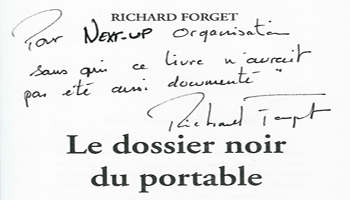 RICHARD FORGET
Pour NEXT-UP organisation
sans qui ce livre n'aurait
pas été aussi documenté "
Richard Forget
Le dossier noir
du portable